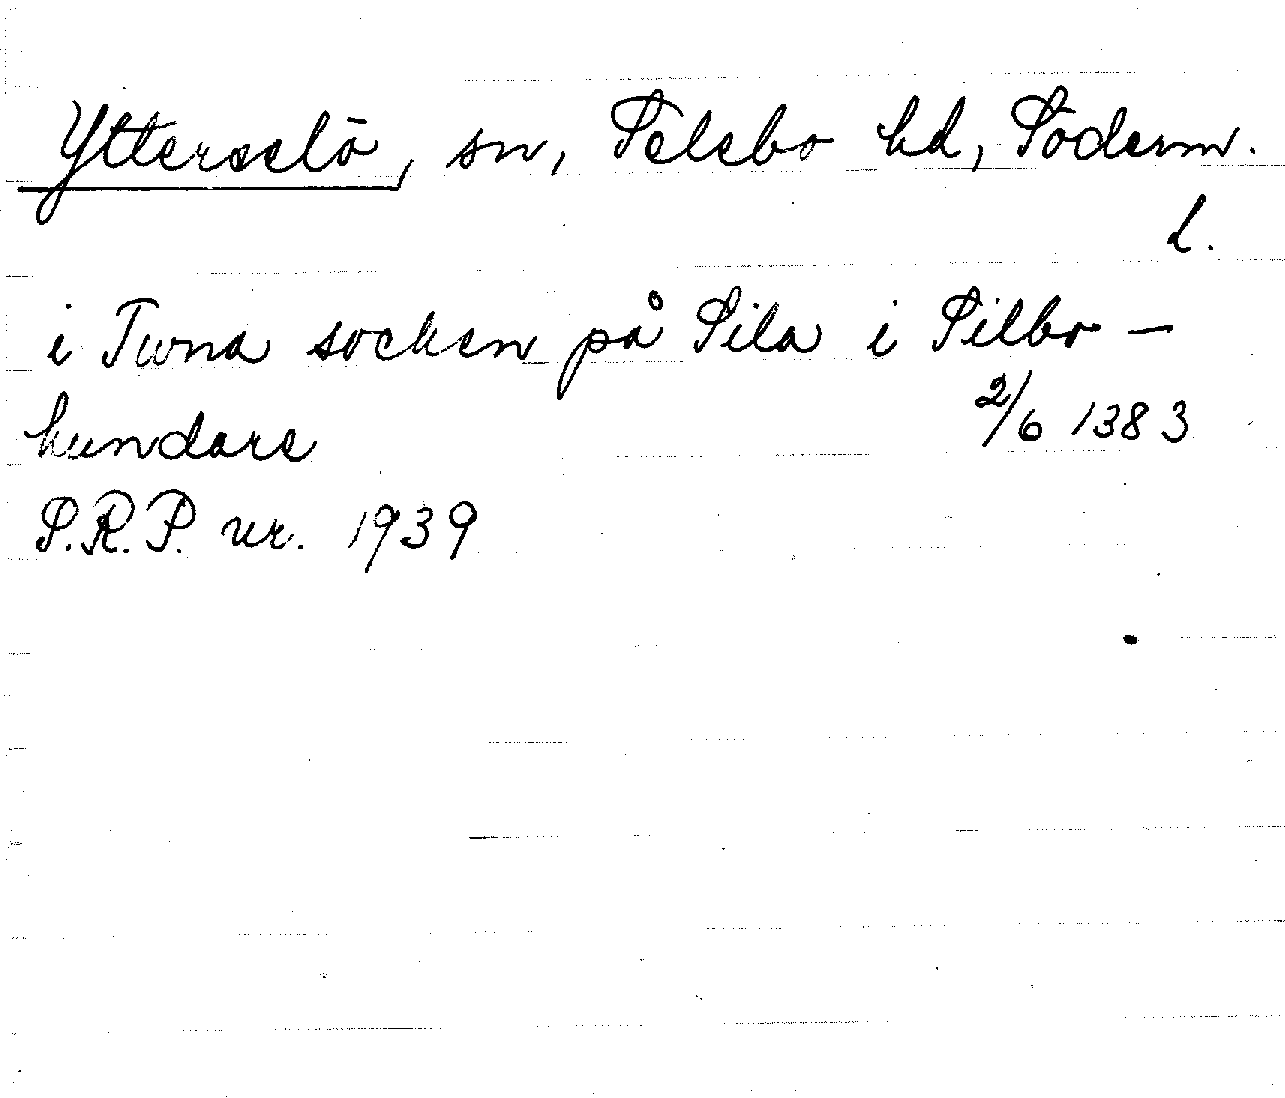 Ytterselö, sn, Selebo hd, Söderm.
l.
i Tuna socken på Sila i Silbo -
hundare 2/6 1383
S.R.P. nr. 1939